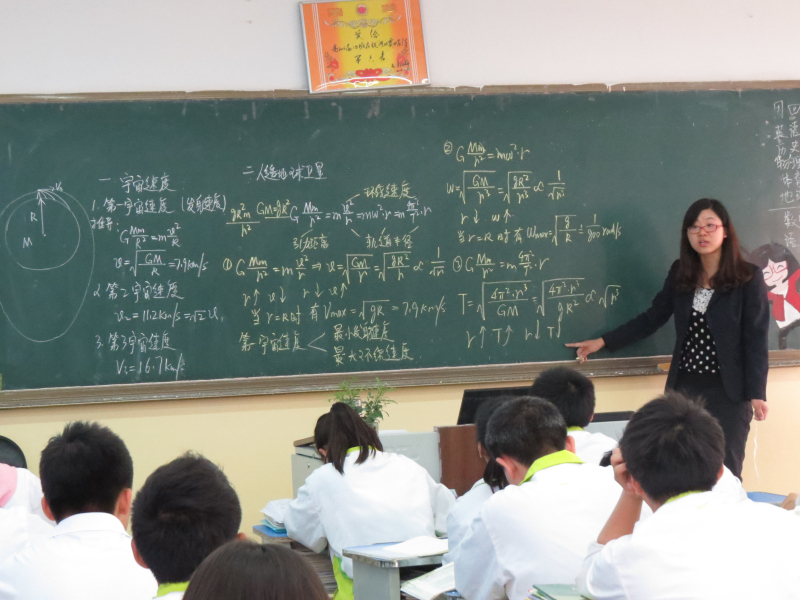 奖给
第一名
一 宇宙速度
1. 第一宇宙速度 (发射速度)
推导:
G Mm/R² = m v²/R
v = √(GM/R) = 7.9km/s
2. 第二宇宙速度
v₂ = 11.2km/s = √2 v₁
3. 第三宇宙速度
V₃ = 16.7km/s
R
M
二 人造地球卫星
gR²m GM=gR² G Mm/r² = m v²/r = mω²·r = m 4π²/T²·r
环绕速度
轨道半径
① G Mm/r² = m v²/r ⇒ v = √(GM/r) = √(gR²/r) ∝ 1/√r
r↑ v↓ r↓ v↑
当 r=R时 有 Vmax = √gR = 7.9km/s
第一宇宙速度 < 最小发射速度
最大环绕速度
② G Mm/r² = mω²·r
ω = √(GM/r³) = √(gR²/r³) ∝ 1/√r³
r↓ ω↑
当 r=R时 有 ωmax = √(g/R) = 1/800 rad/s
③ G Mm/r² = m 4π²/T²·r
T = √(4π²·r³/GM) = √(4π²·r³/gR²) ∝ √r³
r↑ T↑ r↓ T↓